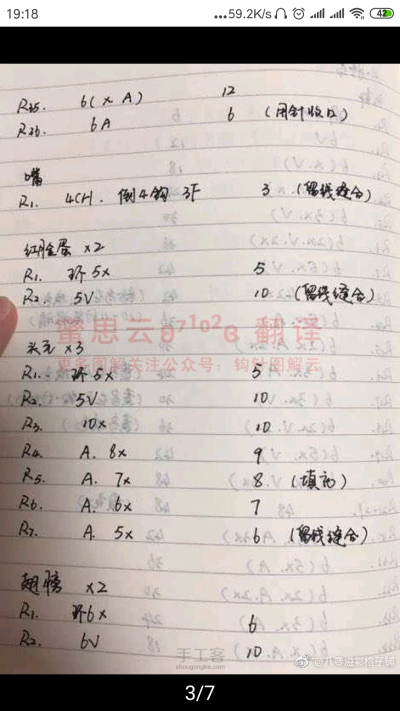 19:18
...59.2K/s
42
R35. 6(x A) 12
R36. 6A 6 (用针收口)
嘴
R1. 4CH. 倒4钩 3F 3 (留线缝合)
红脸蛋 x2
R1. 环5x 5
R2. 5V 10 (留线缝合)
蜜思云57102G 翻译
头毛 x3
更多图解关注公众号:钩针图解云
R1. 环5x 5
R2. 5V 10
R3. 10x 10
R4. A. 8x 9
R5. A. 7x 8 (填充)
R6. A. 6x 7
R7. A. 5x 6 (留线缝合)
翅膀 x2
R1. 环6x 6
R2. 6V 10
手工客
shougongke.com
3/7